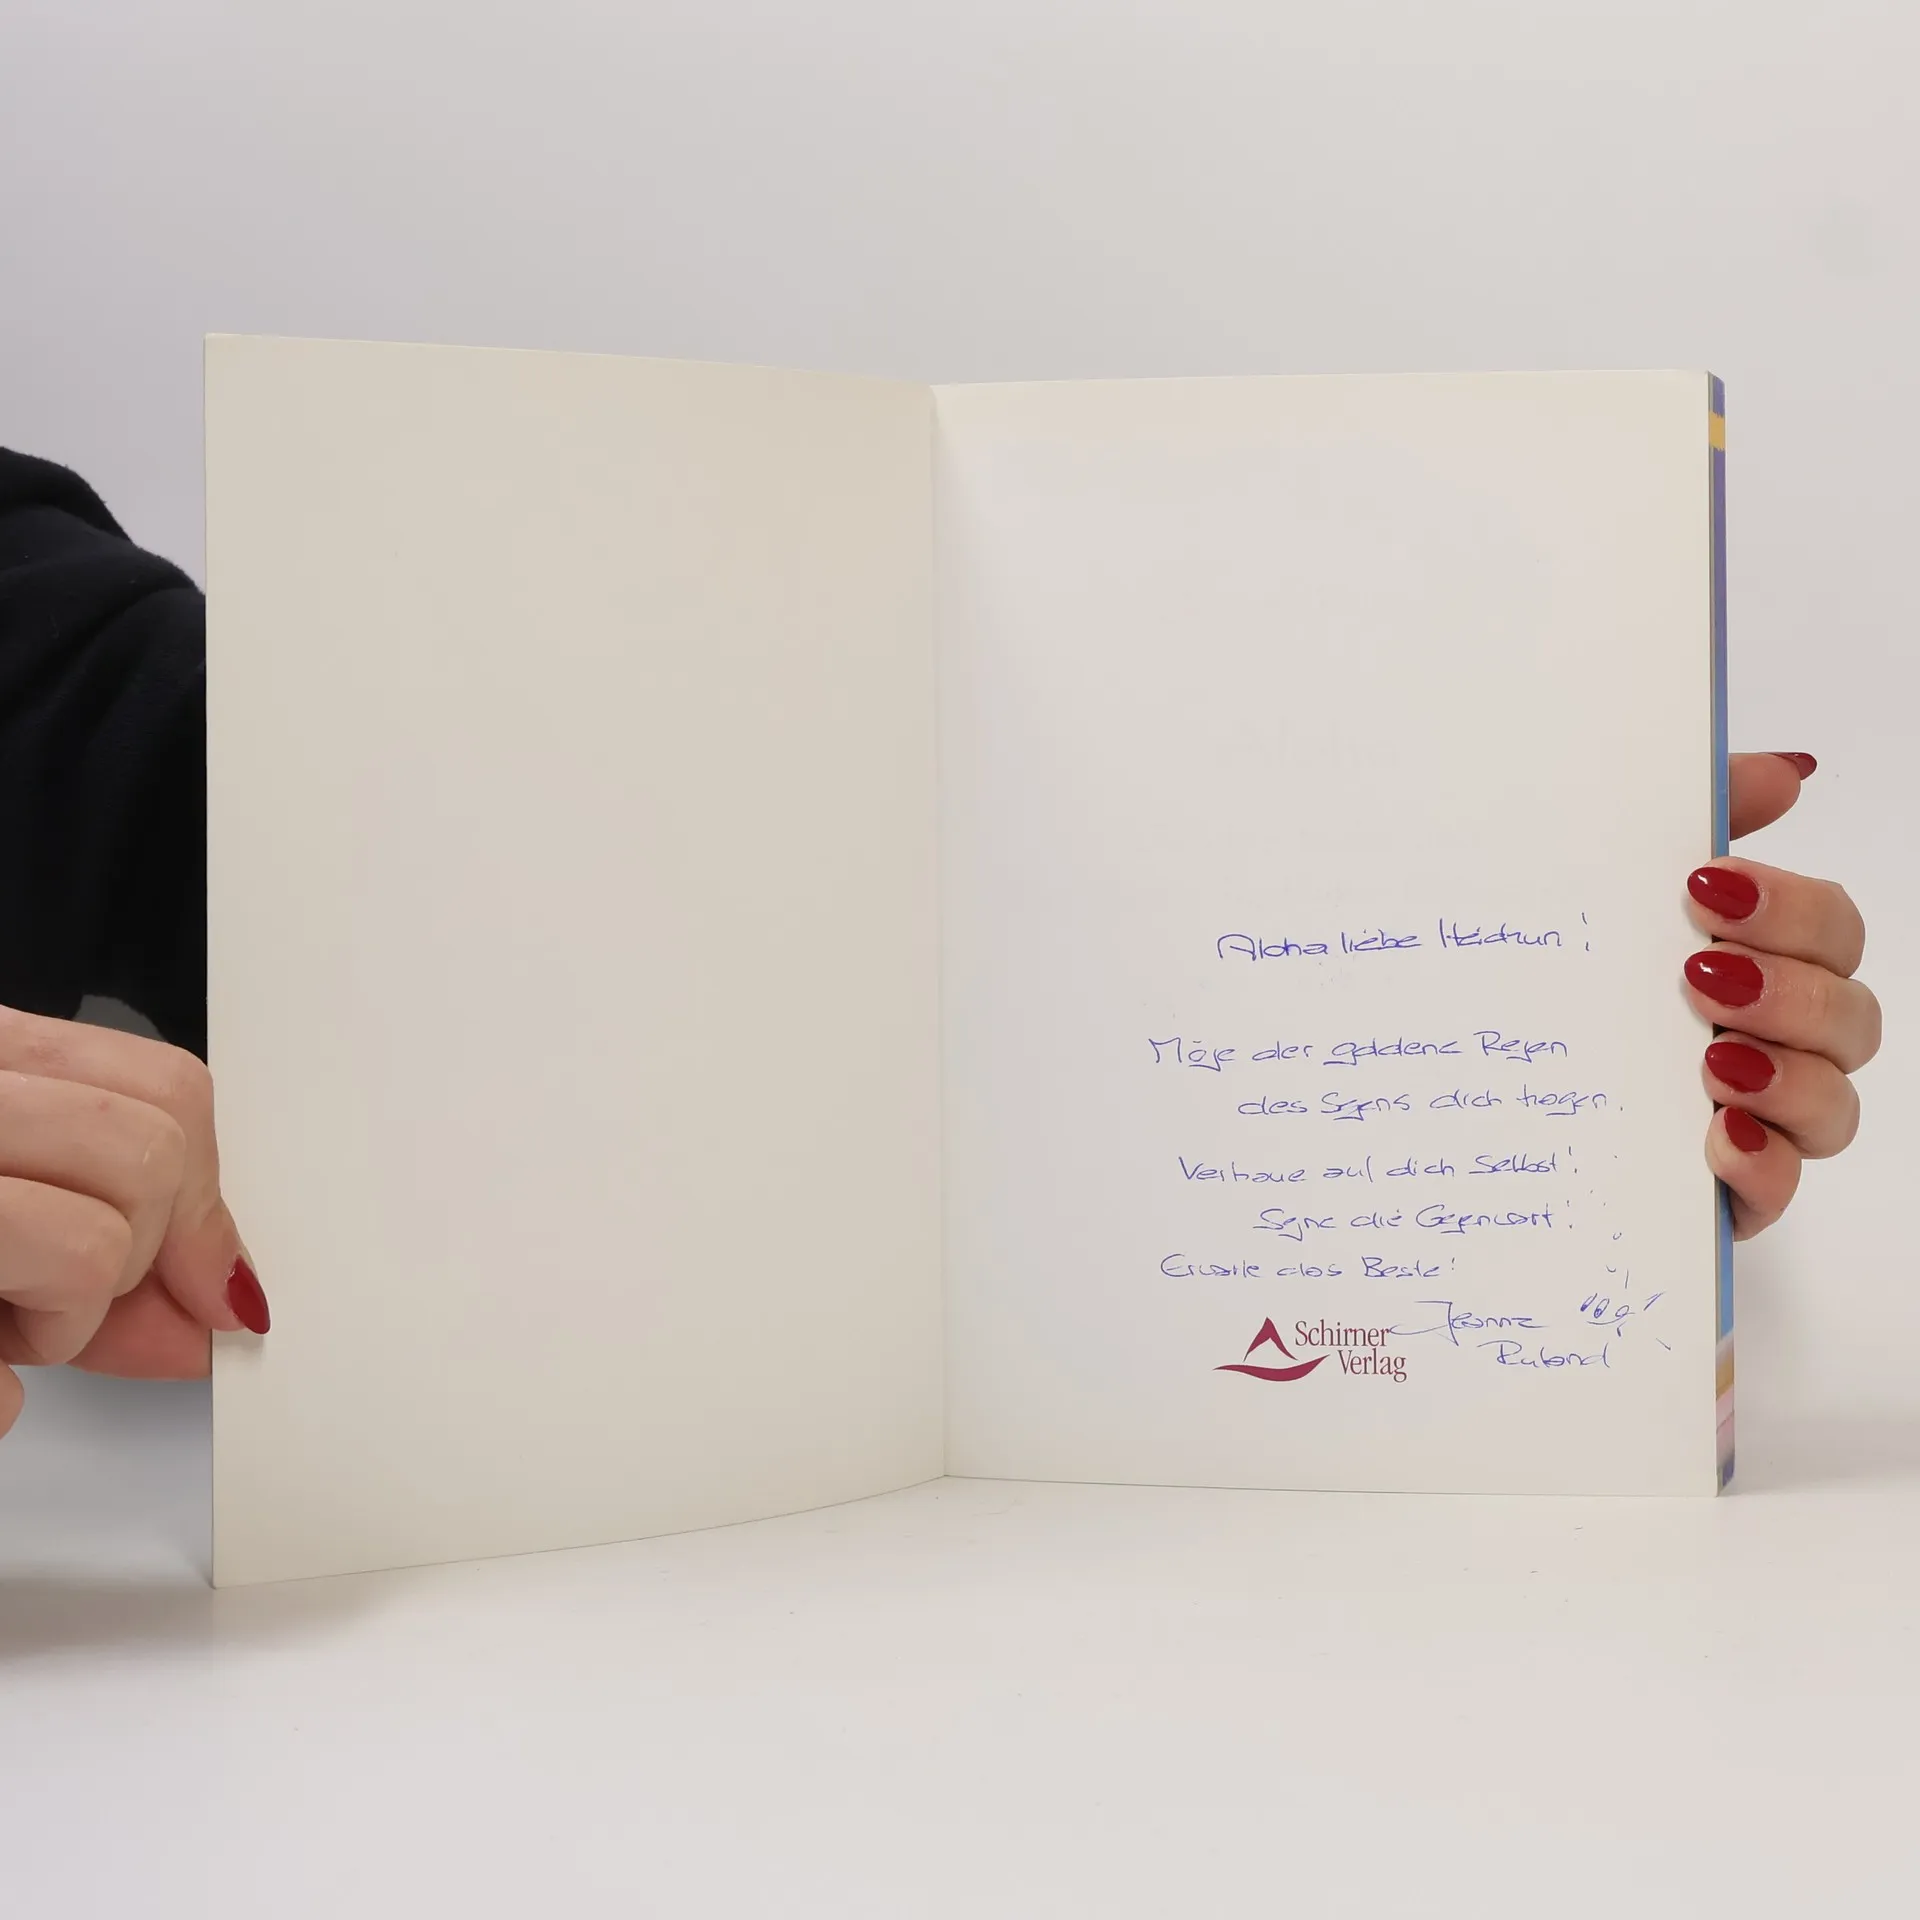 Aloha liebe Heidrun!
Möge der goldene Regen
des Segens dich tragen.
Vertraue auf dich selbst!
Segne die Gegenwart!
Erwarte das Beste!
Jeanne
Ruland
Schirner
Verlag